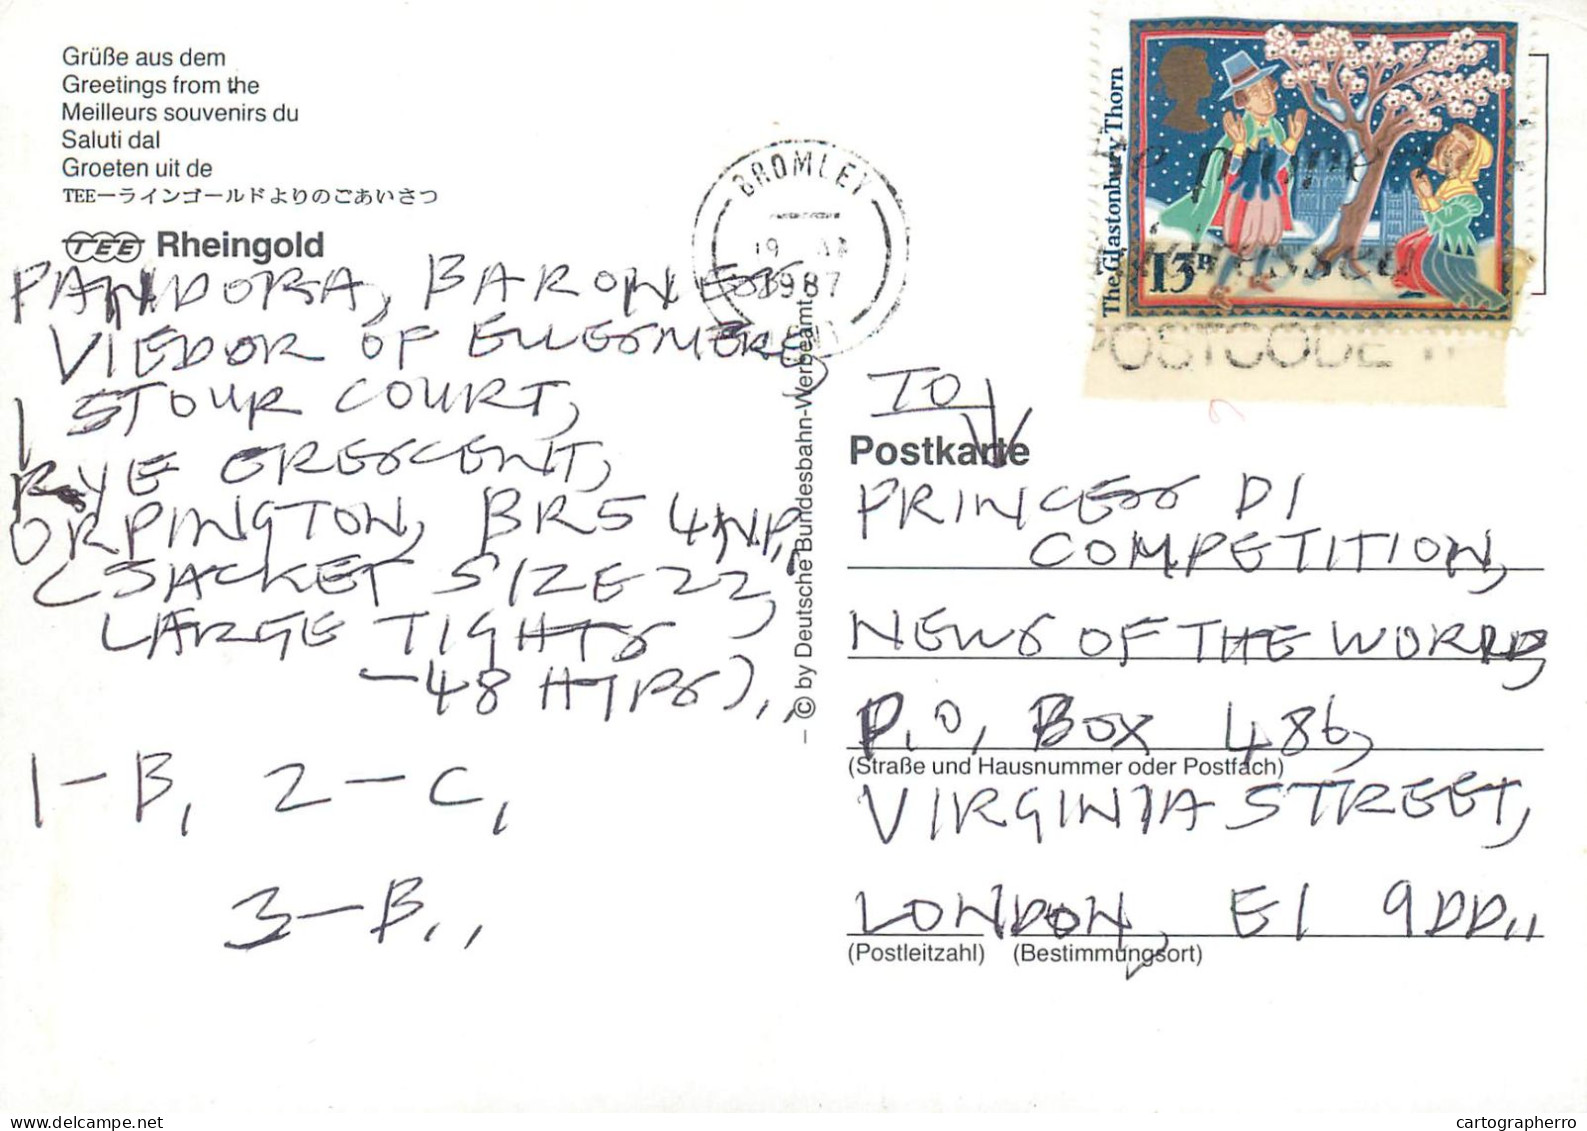 Grüße aus dem
Greetings from the
Meilleurs souvenirs du
Saluti dal
Groeten uit de
TEE－ラインゴールドよりのごあいさつ
TEE Rheingold
PANDORA, BARONESS
VIEDOR OF ELLESMERE,
1 STOUR COURT,
RYE CRESCENT,
ORPINGTON, BR5 4NP,,
(JACKET SIZE 22,
LARGE TIGHTS
-48 HIPS),,
1-B, 2-C,
3-B,,
BROMLEY
19
1987
The Glastonbury Thorn
13P
POSTCODE it
© by Deutsche Bundesbahn-Werbeamt
TO
Postkarte
PRINCESS DI
COMPETITION,
NEWS OF THE WORLD,
P.O, BOX 486,
(Straße und Hausnummer oder Postfach)
VIRGINIA STREET,
LONDON, E1 9DD,,
(Postleitzahl) (Bestimmungsort)
cartographerro